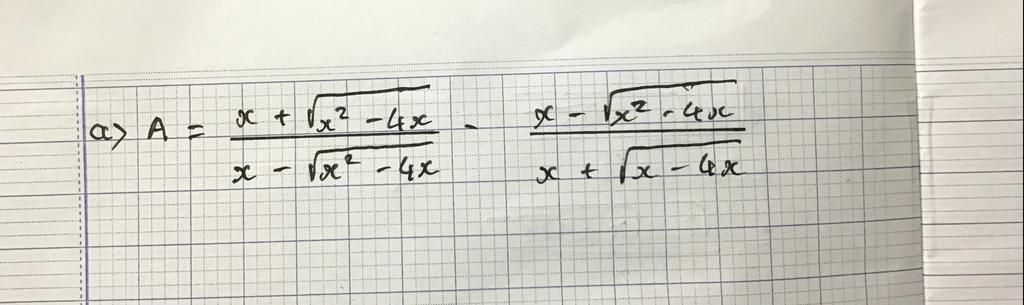 a> A = \frac{x + \sqrt{x^2 - 4x}}{x - \sqrt{x^2 - 4x}} - \frac{x - \sqrt{x^2 - 4x}}{x + \sqrt{x - 4x}}